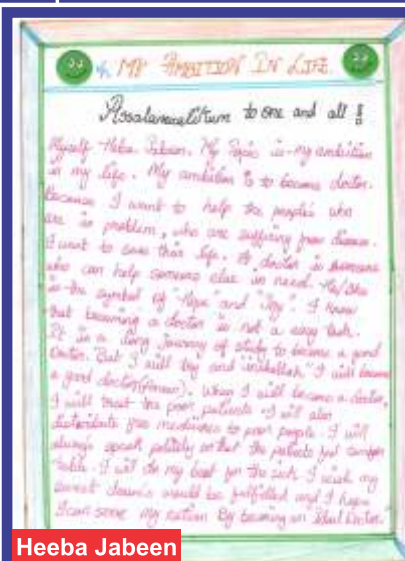 MY AMBITION IN LIFE
Assalamualikum to one and all !
Myself Heba Jabeen. My Topic is my ambition
in my life. My ambition is to become doctor.
Because I want to help the people's who
are in problem, who are suffering from disease.
I want to save their life. A doctor is someone
who can help someone else in need. He/She
is the symbol of "Hope" and "Joy". I know
that becoming a doctor is not a easy task.
It is a long journey of study to become a good
Doctor. But I will try and "inshallah" I will become
a good doctor. When I will become a doctor,
I will treat the poor patients. I will also
distribute free medicines to poor people. I will
always speak politely so that the patients feel
I will do my best for the sick. I wish my
sweet dreams would be fulfilled and I hope
I can serve my nation By becoming an Ideal Doctor."
Heeba Jabeen